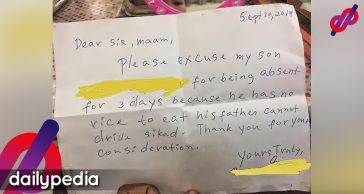 Sept 30, 2019
Dear Sir, maam,
Please excuse my son
for being absent
for 3 days because he has no
rice to eat his father cannot
drive sikad. Thank you for your
consideration.
Yours Truly,
dailypedia